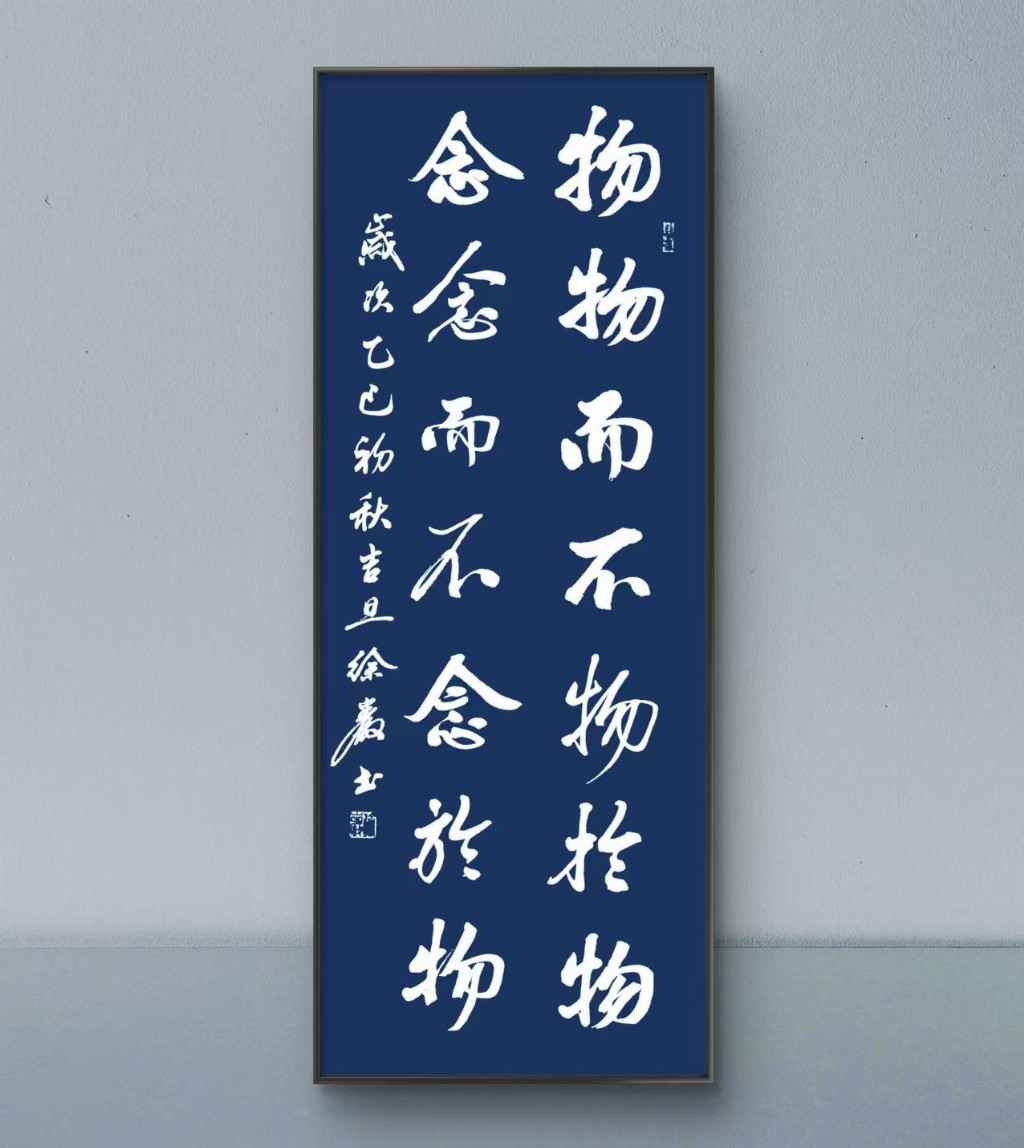 物物而不物於物
念念而不念於物
歲次乙巳初秋吉旦徐嚴书